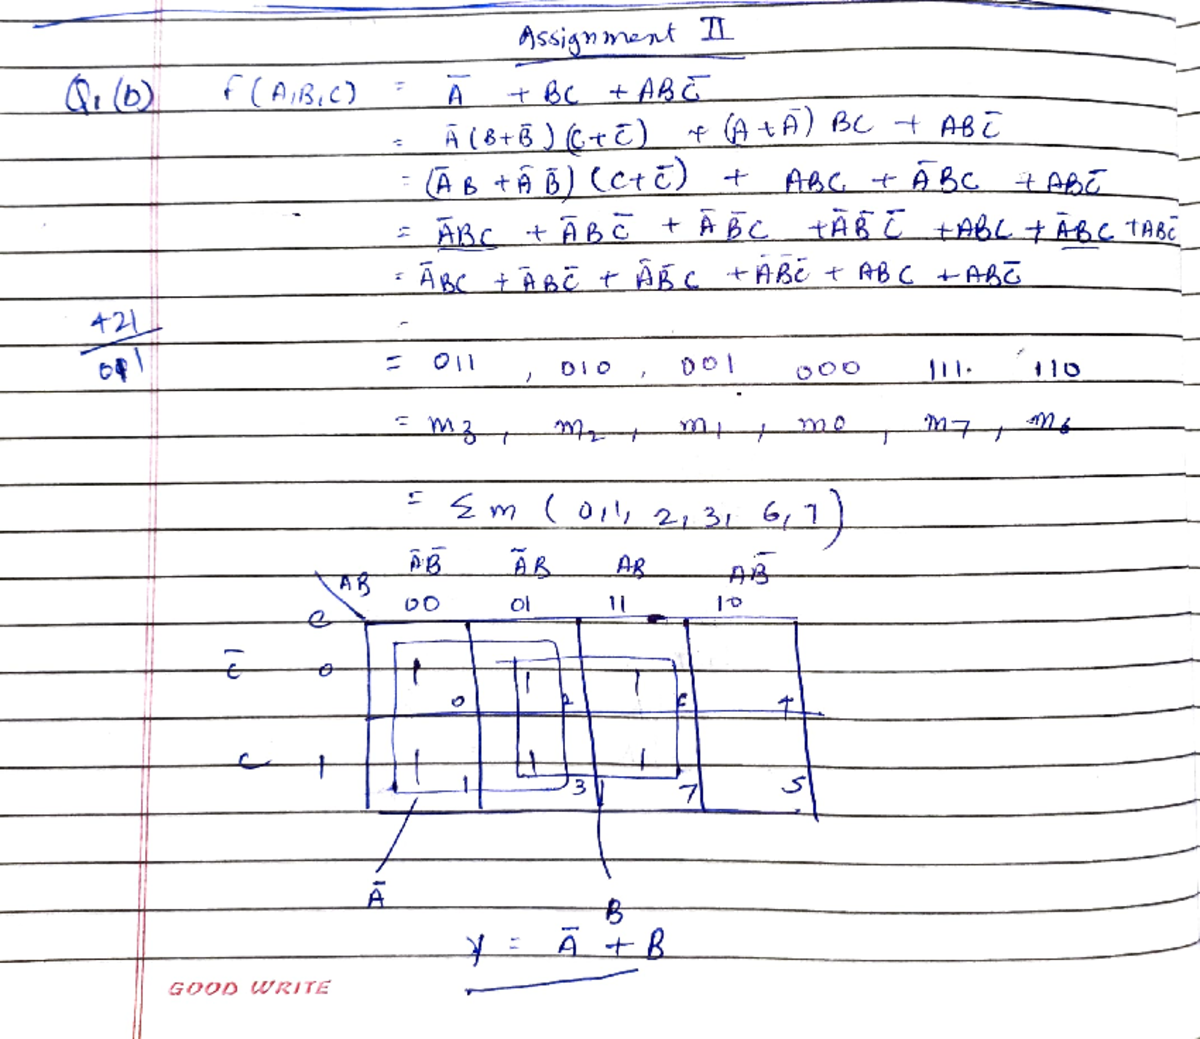 Assignment II
Q1(b) F(A,B,C) = Ā + BC + ABC̄
= Ā(B+B̄)(C+C̄) + (A+Ā) BC + ABC̄
= (ĀB + ĀB̄) (C+C̄) + ABC + ĀBC + ABC̄
= ĀBC + ĀBC̄ + ĀB̄C + ĀB̄C̄ + ABC + ĀBC + ABC̄
= ĀBC + ĀBC̄ + ĀB̄C + ĀB̄C̄ + ABC + ABC̄
421
= 011 , 010 , 001 000 111. 110
= m3 , m2 , m1 , m0 , m7 , m6
= Σm ( 0,1, 2, 3, 6, 7 )
ĀB̄ ĀB AB AB̄
AB 00 01 11 10
C
C̄ 0 1 1 1
0 2 6 4
C 1 1 1 1
1 3 7 5
Ā
B
Y = Ā + B
GOOD WRITE